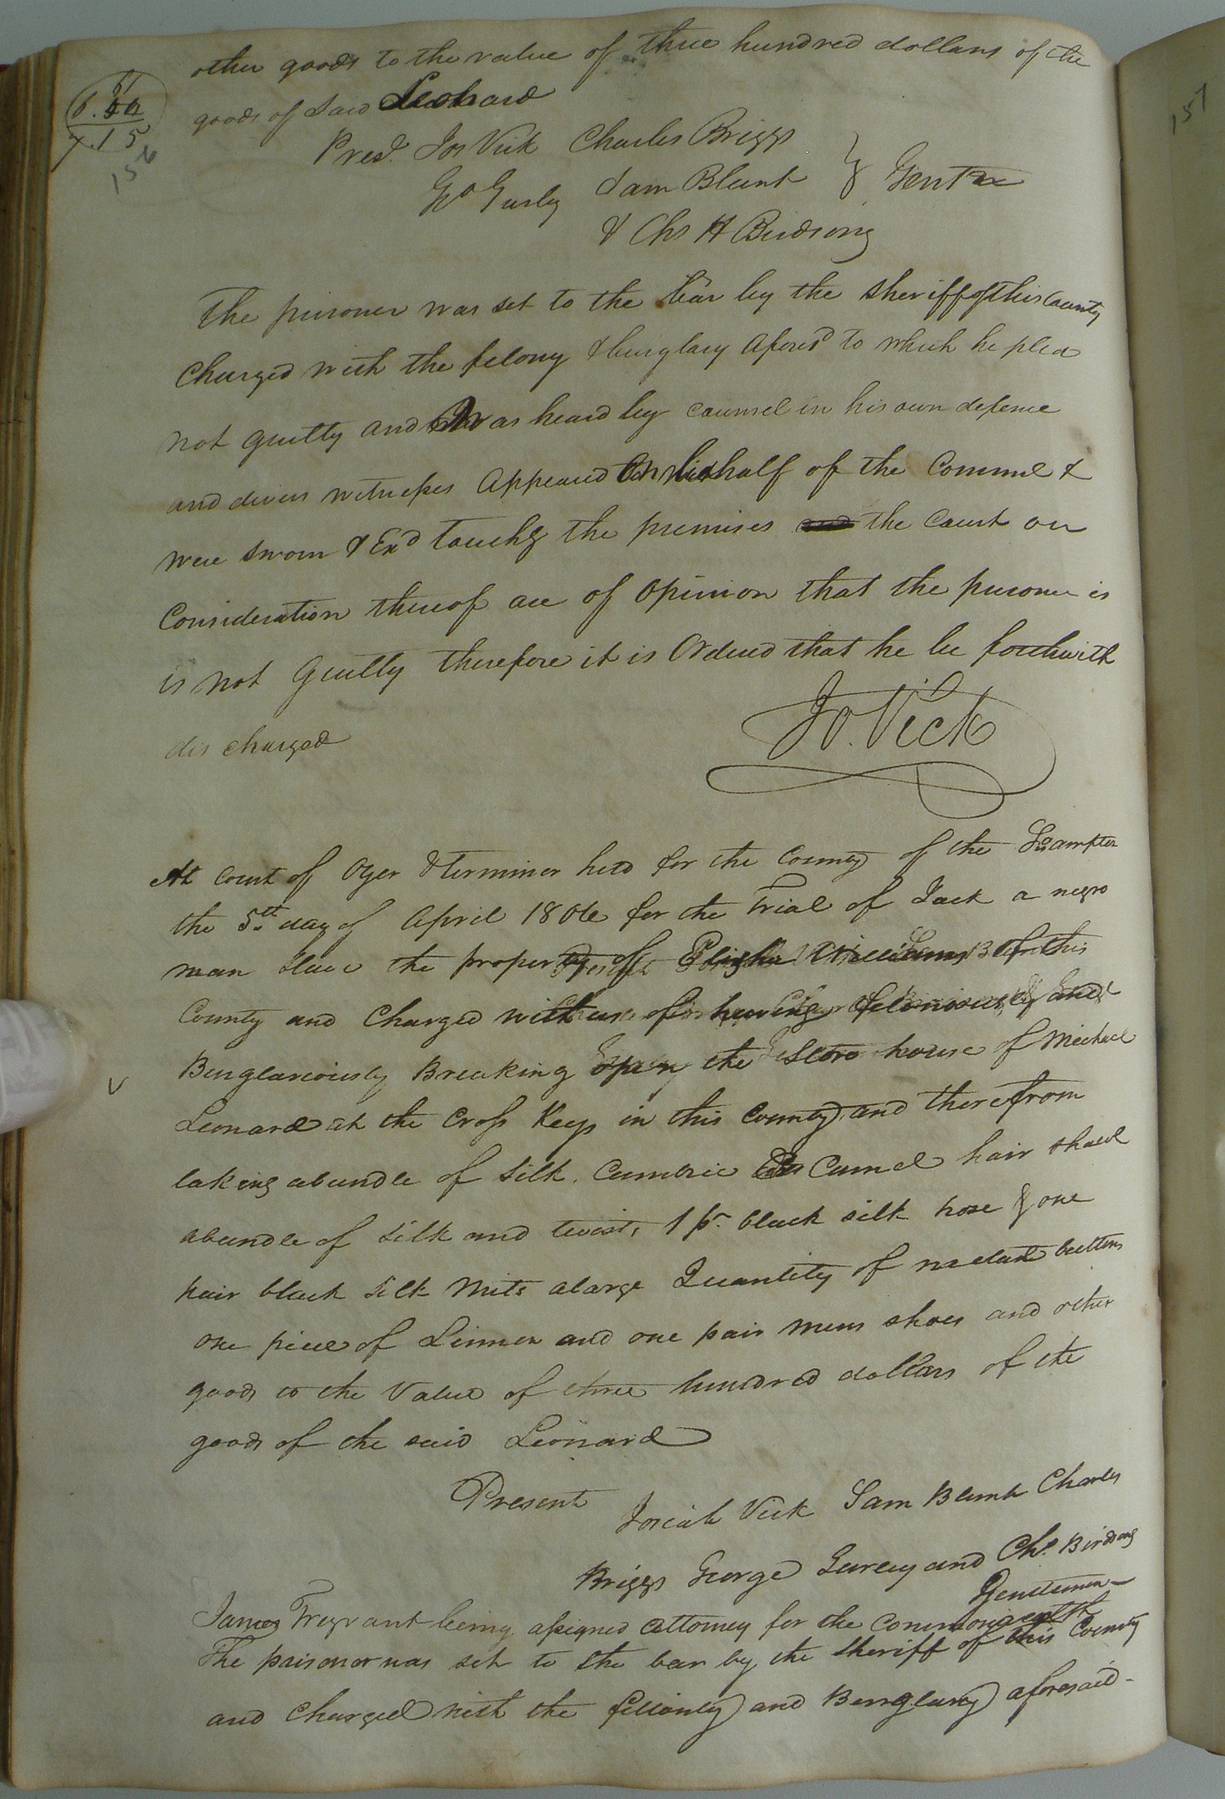 other goods to the value of three hundred dollars of the
goods of said Leonard
61
6.50
7.15
156
157
Pres.t Jos Vick Charles Briggs
Go Gurley Sam Blunt } Gent
& Chs H Birdsong
The prisoner was set to the bar by the sheriff of this County
Charged with the felony & burglary afores.d to which he plea
not guilty and was heard by counsel in his own defence
and divers witnesses appeared on behalf of the Comml &
were sworn & Ex.d touchg the premises and the Court on
Consideration thereof are of opinion that the prisoner is
is not guilty therefore it is Ordered that he be forthwith
discharged
Jo. Vick
At Court of Oyer & terminer held for the County of the Southampton
the 5th day of April 1806 for the Trial of Jack a negro
man Slave the property of Williams of this
County and Charged with having feloniously and
Burglariously Breaking open the Store house of Michael
Leonard at the Cross Keys in this County and therefrom
taking a bundle of Silk Cambric Camel hair shawl
a bundle of silk and twist, 1 pr. black silk hose & one
pair black silk Mits a large Quantity of buttons
one piece of Linnen and one pair mens shoes and other
goods to the Value of three hundred dollars of the
goods of the said Leonard
Present Josiah Vick Sam Blunt Charles
Briggs George Gurley and Chs. Birdsong
Gentlemen
James Trezvant being assigned attorney for the commonwealth
The prisoner was set to the bar by the sheriff of this County
and Charged with the fellonly and Burglary aforesaid -